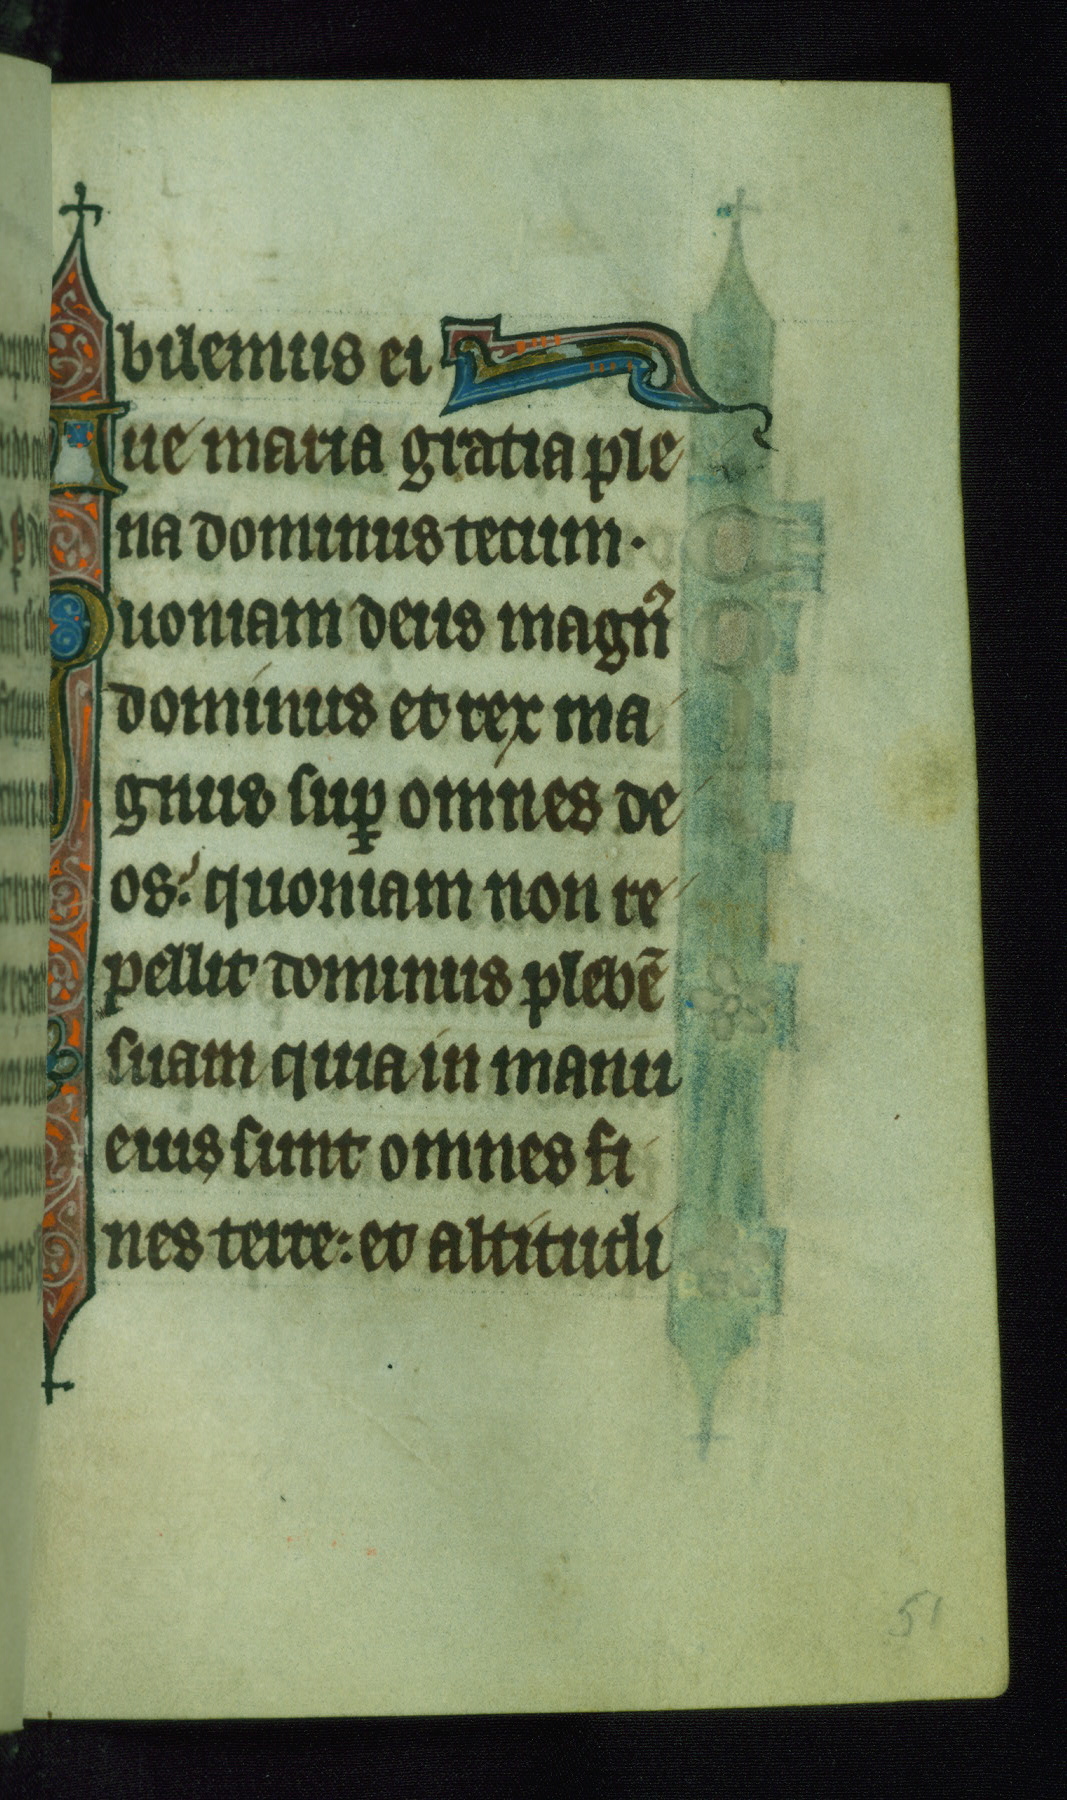 bilemus ei
Aue maria gratia ple
na dominus tecum·
Quoniam deus magn᷒
dominus et rex ma
gnus sup̱ omnes de
os: quoniam non re
pellit dominus plebē
suam quia in manu
eius sunt omnes fi
nes terre: et altitudi
51